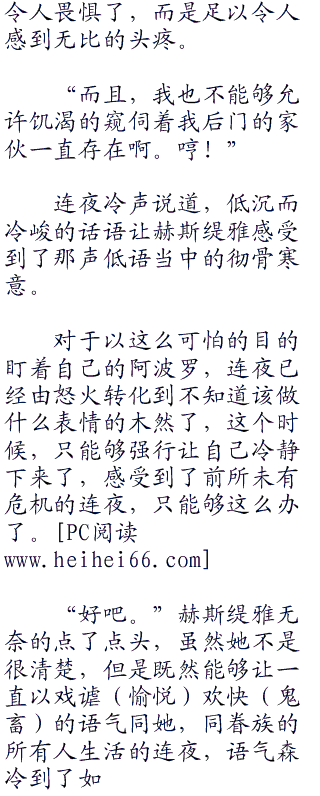 令人畏惧了，而是足以令人
感到无比的头疼。
“而且，我也不能够允
许饥渴的窥伺着我后门的家
伙一直存在啊。哼！”
连夜冷声说道，低沉而
冷峻的话语让赫斯缇雅感受
到了那声低语当中的彻骨寒
意。
对于以这么可怕的目的
盯着自己的阿波罗，连夜已
经由怒火转化到不知道该做
什么表情的木然了，这个时
候，只能够强行让自己冷静
下来了，感受到了前所未有
危机的连夜，只能够这么办
了。[PC阅读
www.heihei66.com]
“好吧。”赫斯缇雅无
奈的点了点头，虽然她不是
很清楚，但是既然能够让一
直以戏谑（愉悦）欢快（鬼
畜）的语气同她，同眷族的
所有人生活的连夜，语气森
冷到了如